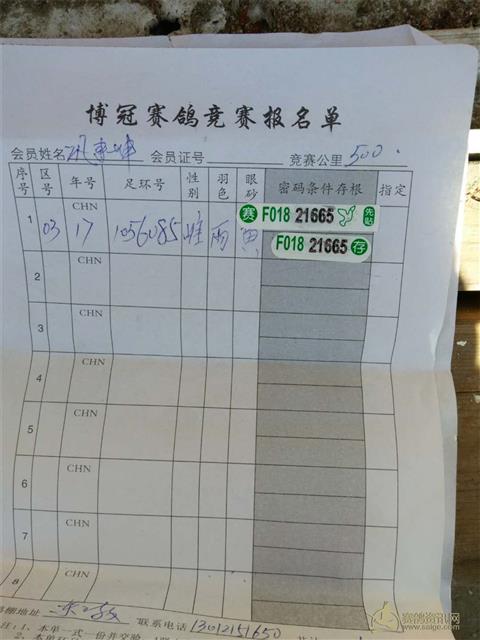 博冠赛鸽竞赛报名单
会员姓名 会员证号 竞赛公里 500
序号 区号 年号 足环号 性别 羽色 眼砂 密码条件存根 指定
1 03 CHN 17 1056085 雄 雨 黄 赛 F018 21665 先贴
F018 21665 存
2 CHN
3 CHN
4 CHN
5 CHN
6 CHN
7 CHN
8 CHN
棚地址 联系电话 13012151650
注：1、本单一式一份并交验
赛鸽资讯网
www.saige.com